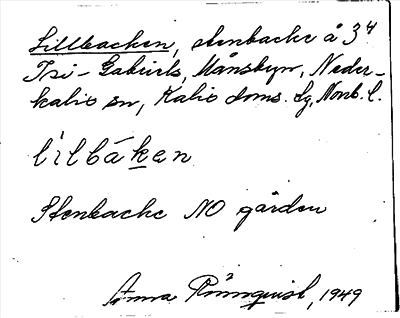 Lillbacken, stenbacke å 3⁴
Isi-Gabriels, Månsbyn, Neder-
kalix sn, Kalix doms. Lg, Norrb. l.
lìlbáken
Stenbacke NO gården
Anna Rönnquist, 1949